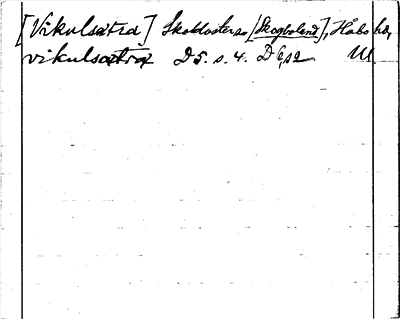 [Vikulsätra] Skoklosters [Skogboland], Håbo hd,
vikulsatra D5. s. 4. D 6,s2 Ul